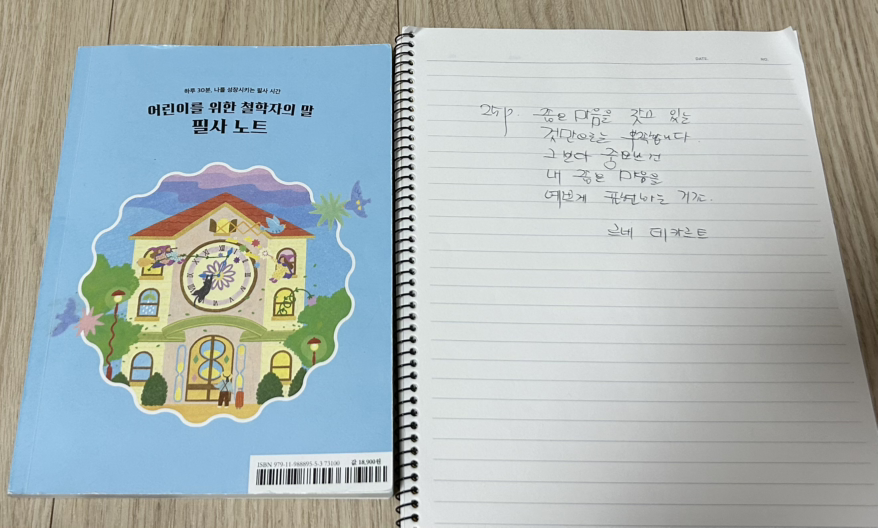 하루 30분, 나를 성장시키는 필사 시간
어린이를 위한 철학자의 말
필사 노트
ISBN 979-11-988895-5-3 73100
값 18,900원
DATE
NO.
25p. 좋은 마음을 갖고 있는
것만으로는 부족합니다.
그보다 중요한 건
내 좋은 마음을
예쁘게 표현하는 거죠.
르네 데카르트